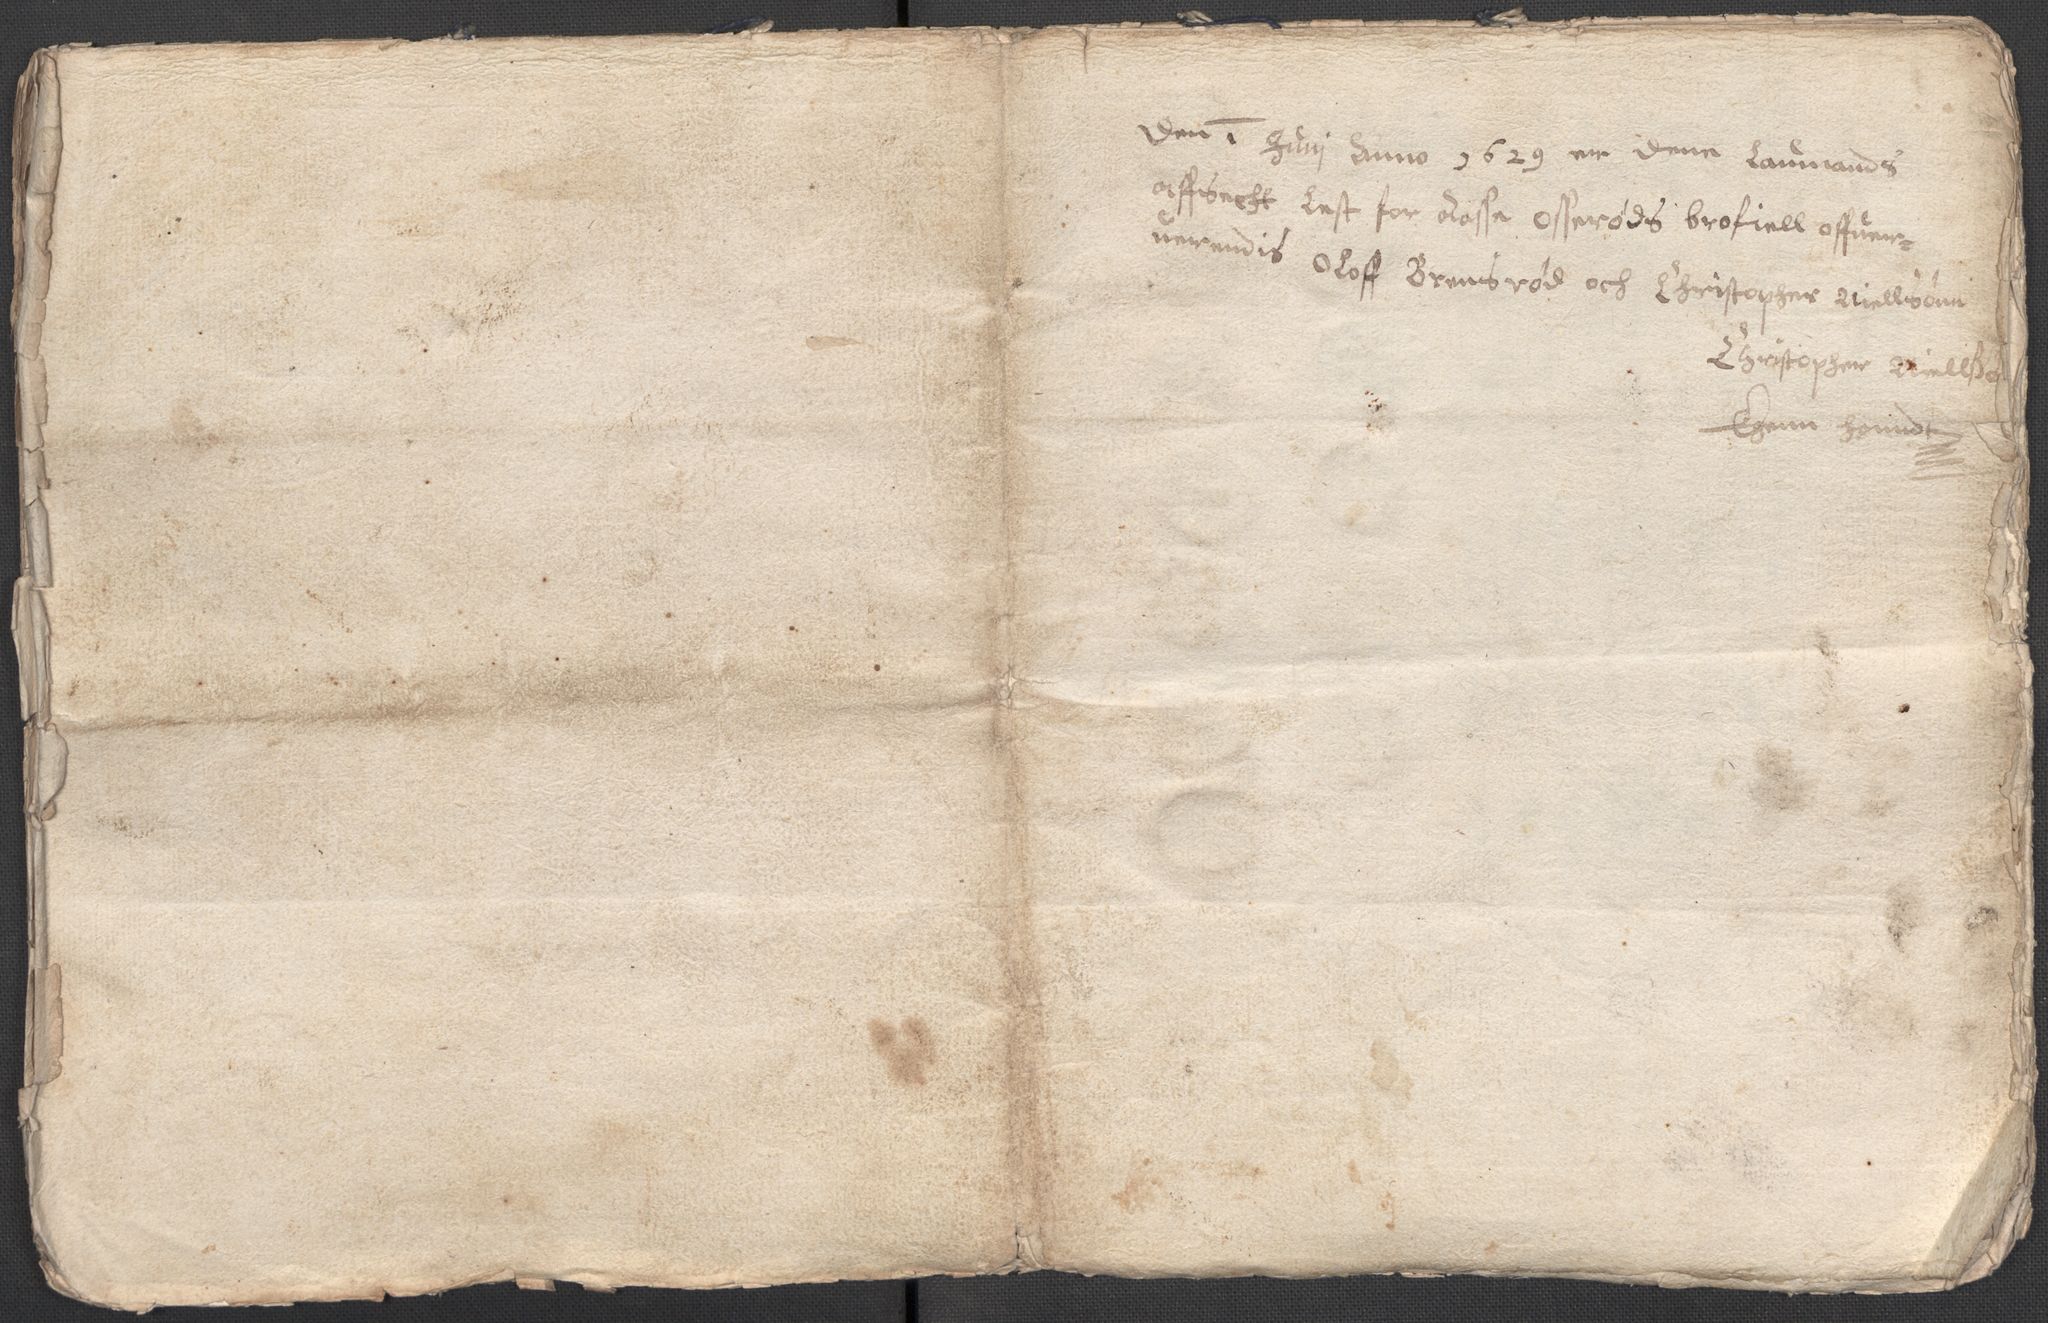 Den 1 Junij Anno 1629 er dene Laumands
affsecht Lest for Aasse Osserøds brofiell offuer=
uerendis Oloff Brensrød och Christopher Niellsönn
Christopher Niellßø
Egenn haanndt